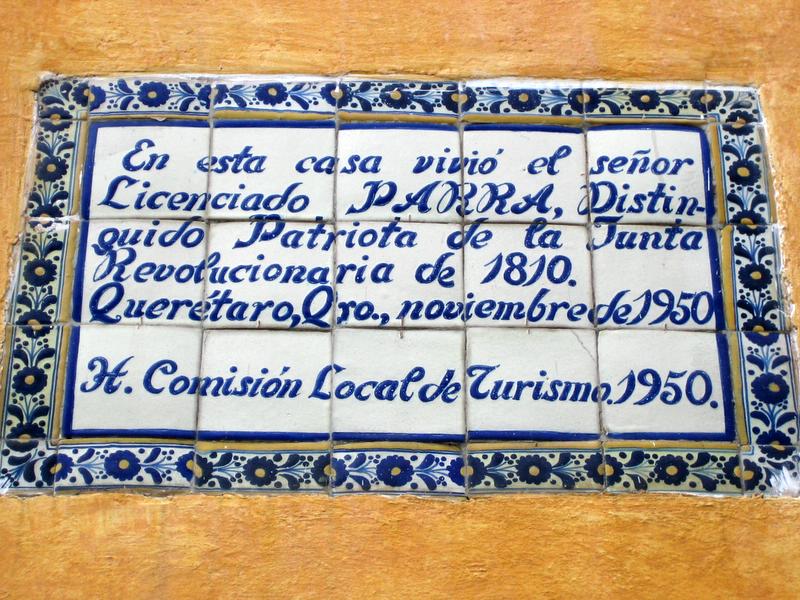 En esta casa vivió el señor
Licenciado PARRA, Distin-
guido Patriota de la Junta
Revolucionaria de 1810.
Querétaro, Qro., noviembre de 1950
H. Comisión Local de Turismo. 1950.